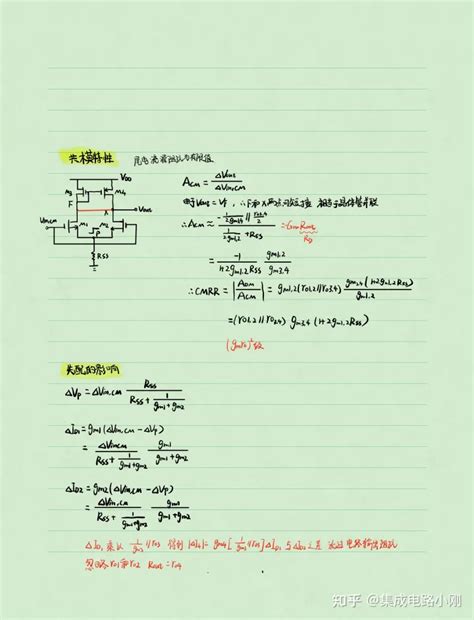 共模特性 尾电流源阻抗为有限值
VDD
M3 M4
F X
Vout
Vin,CM M1 M2
P
RSS
ACM = ΔVout / ΔVin,CM
由于Vout = VF, ∴ F和X两点可短接, 相当于晶体管并联
∴ ACM ≈ - (1/2gm3,4 // ro3,4/2) / (1/2gm1,2 + RSS) = GmRout
RD
= -1 / (1+2gm1,2RSS) · gm1,2 / gm3,4
∴ CMRR = |ADM / ACM| = gm1,2(ro1,2//ro3,4) gm3,4(1+2gm1,2RSS) / gm1,2
= (ro1,2//ro3,4) gm3,4(1+2gm1,2RSS)
(gmro)²级
失配的影响
ΔVP = ΔVin,CM RSS / (RSS + 1/(gm1+gm2))
ΔID1 = gm1(ΔVin,CM - ΔVP)
= ΔVin,CM / (RSS + 1/(gm1+gm2)) · gm1 / (gm1+gm2)
ΔID2 = gm2(ΔVin,CM - ΔVP)
= ΔVin,CM / (RSS + 1/(gm1+gm2)) · gm2 / (gm1+gm2)
ΔID1乘以 1/gm3 // ro3 得到 |ΔID4| = gm4[1/gm3 // ro3]ΔID1 与ΔID2之差 流过电路输出阻抗
忽略ro1和ro2 Rout = ro4
知乎 @集成电路小刚